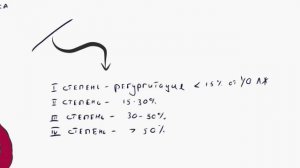 I СТЕПЕНЬ - РЕГУРГИТАЦИЯ < 15% ОТ УО ЛЖ
II СТЕПЕНЬ - 15-30%
III СТЕПЕНЬ - 30-50%
IV СТЕПЕНЬ - > 50%